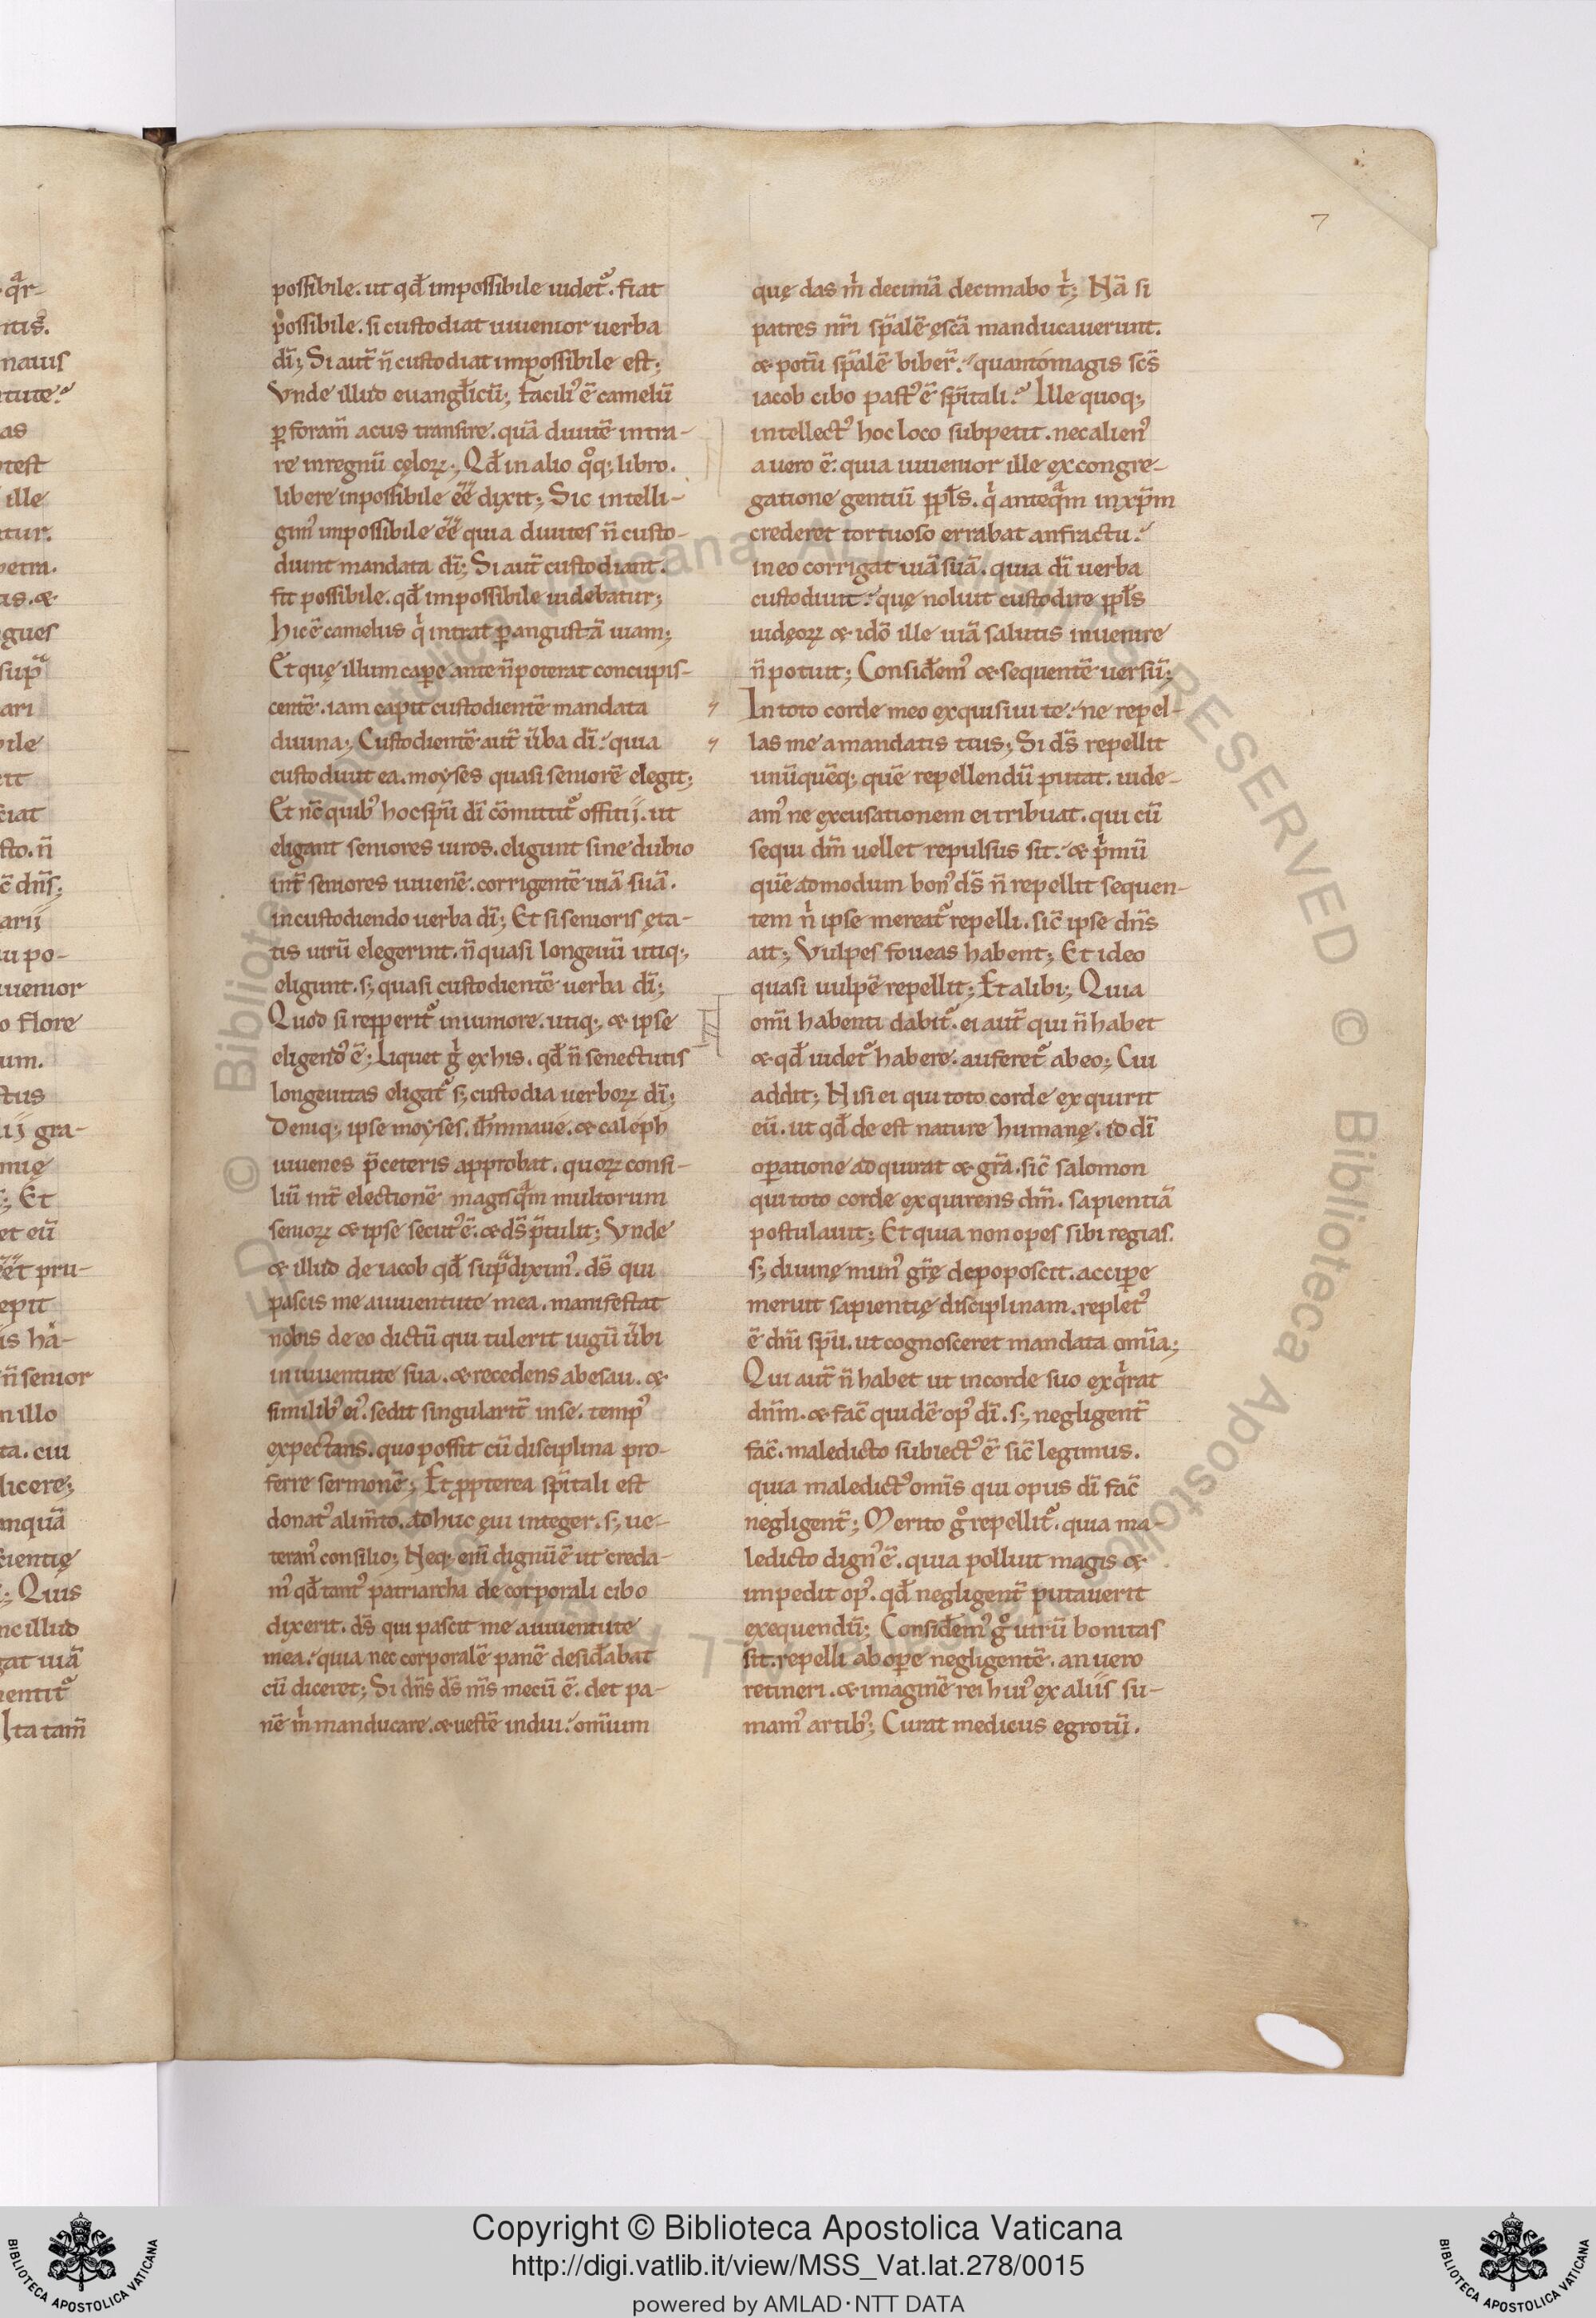 7
possibile. ut qđ impossibile uidet᷑. fiat
possibile. si custodiat iuuenior uerba
dī; Si aut̄ n̄ custodiat impossibile est;
Vnde illud euangłicū; Facili᾽ ē camelū
ꝑ foram̄ acus transire. quā diuitē intra-
re inregnū cęloꝝ; Qđ in alio qͦq; libro.
libere inpossibile ēē dixit; Sic intelli-
gim᾽ impossibile ēē quia diuites n̄ custo-
diunt mandata dī; Si aut̄ custodiant.
fit possibile. qđ impossibile uidebatur;
hic ē camelus qⁱ intrat ꝑ angustā uiam;
Et quę illum caꝑe ante n̄ poterat concupis-
centē. iam capit custodientē mandata
diuina; Custodientē aut̄ ūba dī. quia
custodiuit ea. moyses quasi seniorē elegit;
Et nc̄ quib᾽ hoc spū dī cōmittit᷑ offitij. ut
eligant seniores uiros. eligunt sine dubio
int̄ seniores iuuenē. corrigentē uiā suā.
in custodiendo uerba dī; Et si senioris ęta-
tis uirū elegerint. n̄ quasi longeuū utiq;
eligunt. s; quasi custodientē uerba dī;
Quod si repperit᷑ in iuniore. utiq; & ipse
eligend᾽ ē; Liquet gͥ ex his. qđ n̄ senectutis
longeuitas eligat᷑ s; custodia uerboꝝ dī;
Deniq; ipse moyses. iħm naue. & caleph
iuuenes p̄ceteris approbat. quoꝝ consi-
liū int̄ electionē magisqᵃm multorum
senioꝝ & ipse secut᾽ ē. & dś p̄tulit; Vnde
& illud de iacob qđ supᵃdixim᾽. dś qui
pascis me a iuuentute mea. manifestat
nobis de eo dictū qui tulerit iugū ūbi
in iuuentute sua. & recedens ab esau. &
similib᾽ ei᾽. sedit singularit̄ in se. temp᾽
expectans. quo possit cū disciplina pro-
ferre sermonē; Et ꝓpterea sp̄itali est
donat᾽ alim̄to. adhuc ęui integer. s; ue-
teran᾽ consilio; Neq; eni᷑ dignū ē ut creda-
m᾽ qđ tant᾽ patriarcha de corporali cibo
dixerit. dś qui pascit me a iuuentute
mea. quia nec corporalē panē desiđabat
cū diceret; Si dn̄s dś m̄s mecū ē. det pa-
nē mⁱ manducare. & uestē indui. omīum
quę das mⁱ decimā decimabo tⁱ; Nā si
patres nr̄i sp̄alē ęscā manducauerunt.
& potū sp̄alē biber̄. quantómagis scś
iacob cibo past᾽ ē sp̄itali. Ille quoq;
intellect᾽ hoc loco subpetit. nec alien᾽
a uero ē. quia iuuenior ille ex congre-
gatione gentiū ꝑpłs. qⁱ anteqᵃm in xp̄m
crederet tortuoso errabat anfractu.
in eo corrigat uiā suā. quia dī uerba
custodiuit. quę noluit custodire ꝑpłs
iudęoꝝ & idō ille uiā salutis inuenire
n̄ potuit; Consiđem᾽ & sequentē uersū;
In toto corde meo exquisiui te. ne repel-
las me a mandatis tuis; Si dś repellit
unūquēq; quē repellendū putat. uide-
am᾽ ne excusationem ei tribuat. qui cū
sequi dm̄ uellet repulsus sit. & pⁱmū
quēadmodum bon᾽ dś n̄ repellit sequen-
tem nⁱ ipse mereat᷑ repelli. sic̄ ipse dn̄s
ait; Vulpes foueas habent; Et ideo
quasi uulpē repellit; Et alibi; Quia
omī habenti dabit᷑. ei aut̄ qui n̄ habet
& qđ uidet᷑ habere. auferet᷑ ab eo; Cui
addit; Nisi ei qui toto corde exquirit
eū. ut qđ de est nature humanę. id dī
oꝑatione adquirat & gr̄a. sic̄ salomon
qui toto corde exquirens dm̄. sapientiā
postulauit; Et quia non opes sibi regias.
s; diuinę mun᾽ gr̄ę depoposcit. acciꝑe
meruit sapientię disciplinam. replet᾽
ē dnī spū. ut cognosceret mandata omīa;
Qui aut̄ n̄ habet ut in corde suo exqⁱrat
dnm̄. & fac̄ quidē op᾽ dī. s; negligent̄
fac̄. maledicto subiect᾽ ē sic̄ legimus.
quia maledict᾽ omīs qui opus dī fac̄
negligent̄; Merito gͦ repellit᷑. quia ma-
ledicto dign᾽ ē. quia polluit magis &
impedit op᾽. qđ negligent̄ putauerit
exequendū; Consiđem᾽ gͦ utrū bonitas
sit. repelli ab oꝑe negligentē. an uero
retineri. & imaginē rei hui᾽ ex aliis su-
mam᾽ artib᾽; Curat medicus egrotū.
Copyright © Biblioteca Apostolica Vaticana
http://digi.vatlib.it/view/MSS_Vat.lat.278/0015
powered by AMLAD·NTT DATA
BIBLIOTECA APOSTOLICA VATICANA
BIBLIOTECA APOSTOLICA VATICANA